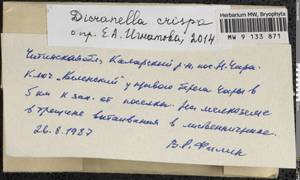 Dicranella crispa
опр. Е.А. Игнатова, 2014.
Herbarium MW, Bryophyta
MW 9 133 871
Читинская обл., Каларский р-н, пос. Н. Чара.
Ключ "Беленский" у правого берега Чары в
5 км к зап. от поселка. На мелкоземе
в трещине вытаивания в лиственничнике.
26.8.1987
В.Р. Филин